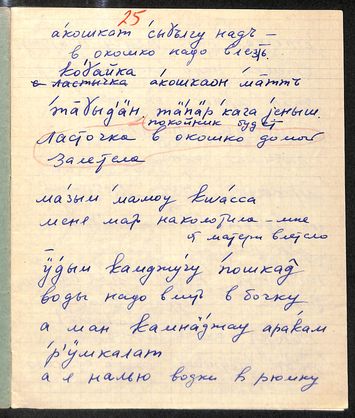 25
а́кошкат сы́бы́лгу надъ —
в окошко надо влезть.
ко́ба́йка
ласты́чка а́кошкаон ма̄ттъ
покойник будет
Ласточка в окошко домой
Залетела
ма́зым ма́моу кwа́сса
меня мать наколотила — мне
от матери влетело
ӱ́дым камджу́гу по́шканд
воды надо влить в бочку
а ман камна́джау ара́кам
р'ӱ́мкалат
а я налью водки в рюмку